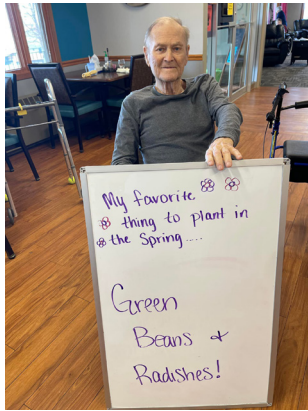 My favorite
thing to plant in
the Spring....
Green
Beans &
Radishes!